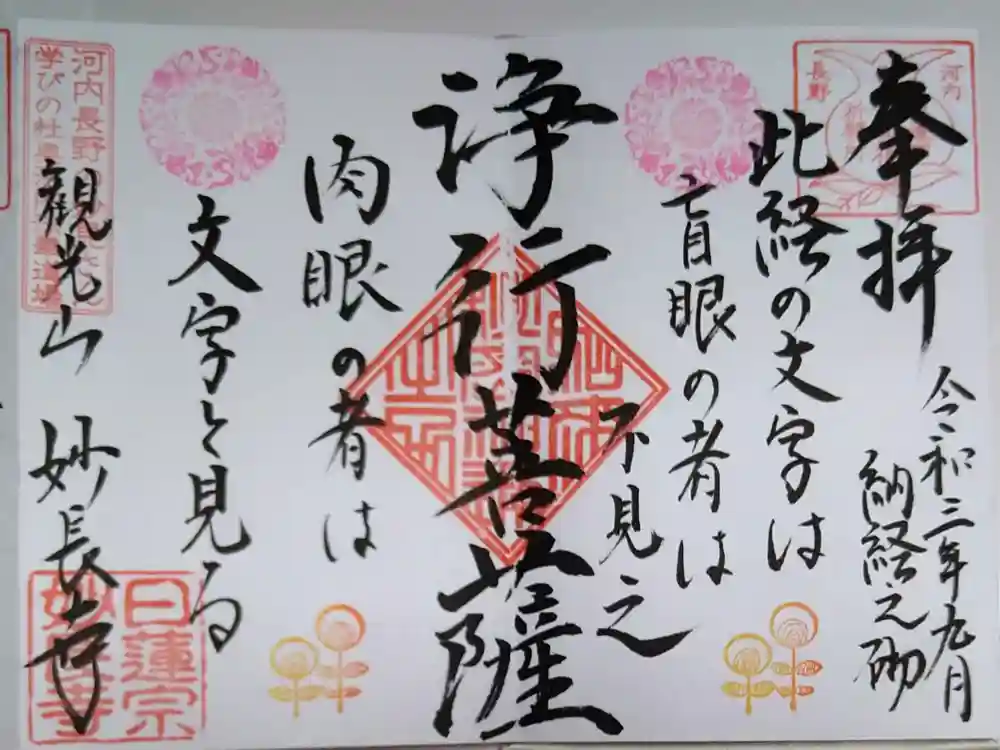 奉拝
令和三年九月
納経之砌
此経の文字は
盲眼の者は
不見之
浄行菩薩
肉眼の者は
文字と見る
観光山 妙長寺
河内
長野
河内長野
学びの杜
日蓮宗
妙長寺